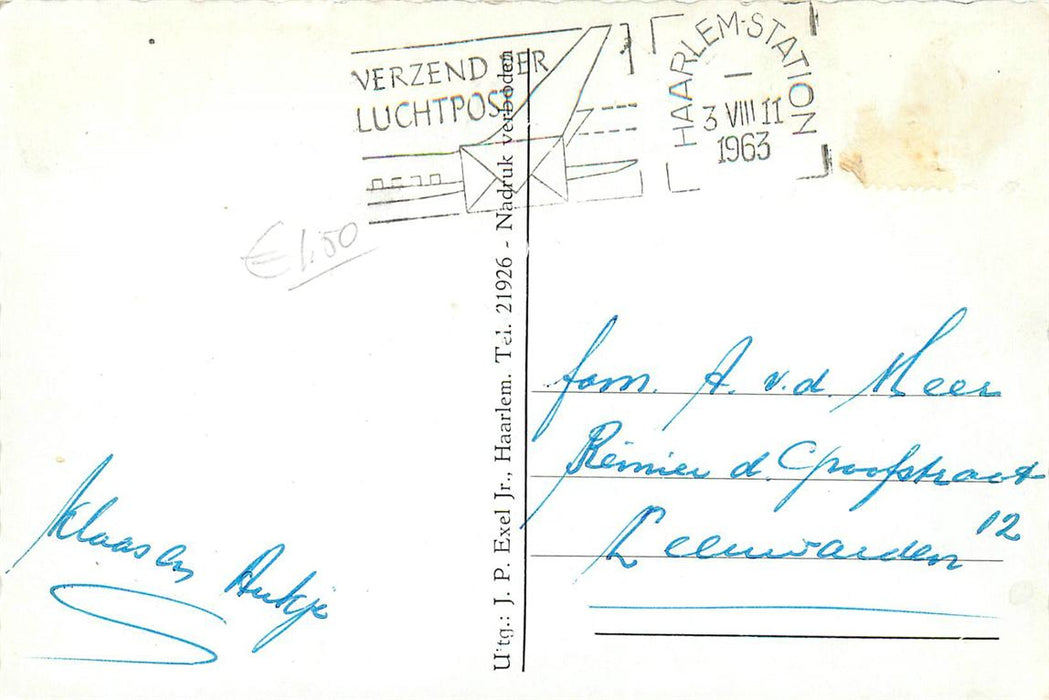 VERZEND PER
LUCHTPOST
HAARLEM-STATION
3 VIII 11
1963
€ 1.50
Uitg.: J. P. Exel Jr., Haarlem. Tel. 21926 - Nadruk verboden
fam. A. v.d. Meer
Reinier d. Graafstraat
12
Leeuwarden
Klaas en Aukje